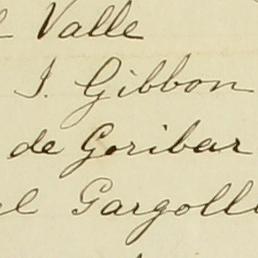 Valle
J. Gibbon
de Goribar
el Gargoll